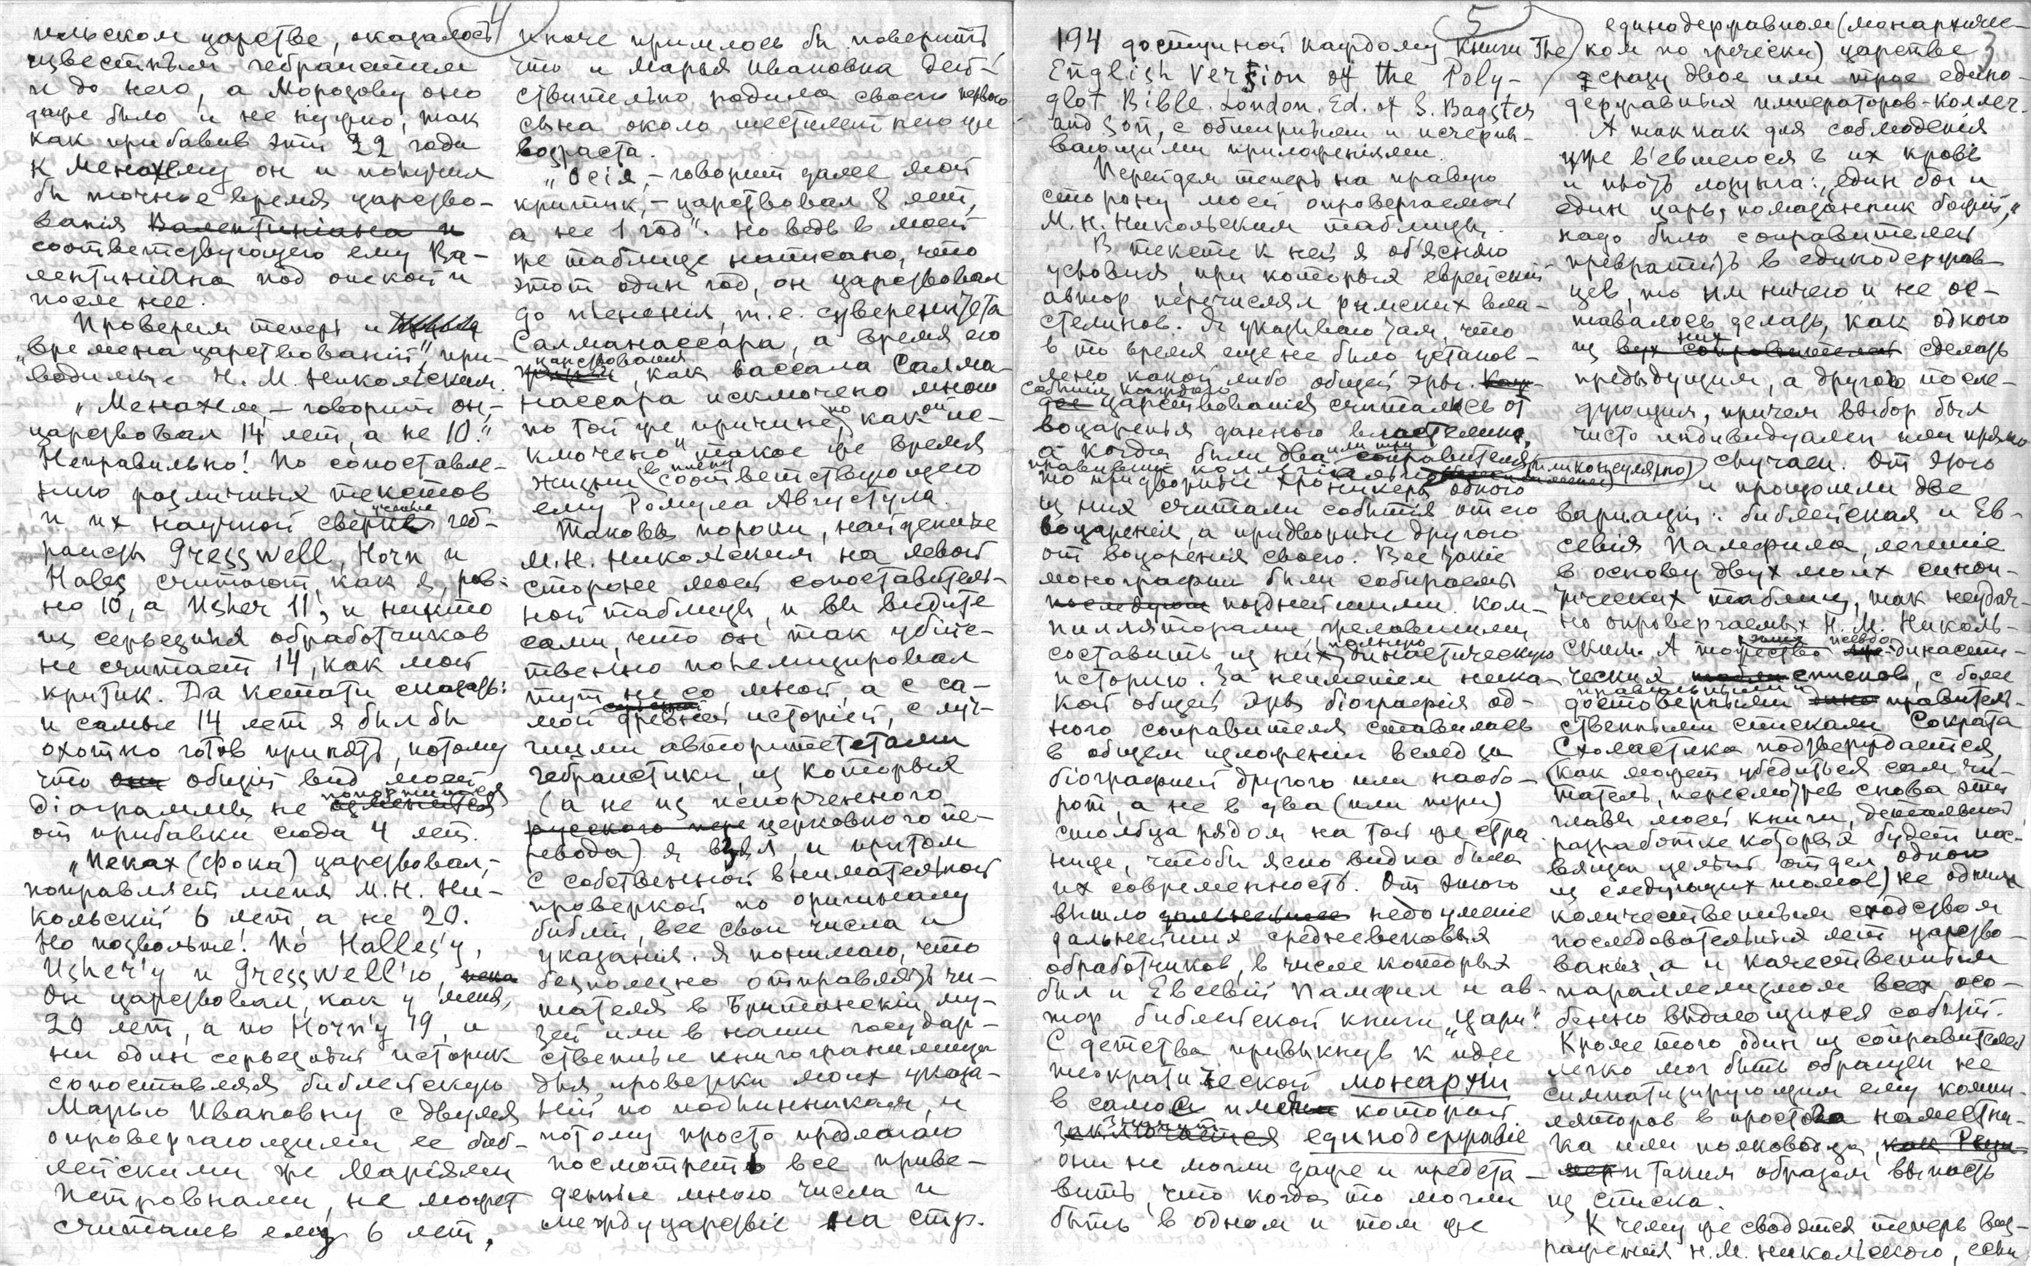 4
ильском царстве, оказалось
известным гебраистам
и до него, а Морозову оно
даже было и не нужно, так
как прибавив эти 22 года
к Менахему он и получил
бы точное время царство-
вания Валентиниана и
соответствующего ему Ва-
лентиниана под опекой и
после нее.
Проверим теперь и
"времена царствований" при-
водимые Н. М. Никольским.
"Менахем, – говорит он, –
царствовал 14 лет, а не 10."
Неправильно! По сопоставле-
нию различных текстов
и их научной сверке геб-
раисты Gresswell, Horn и
Hales считают, как я, ров-
но 10, а Usher 11, и никто
из серьезных обработчиков
не считает 14, как мой
критик. Да кстати сказать:
и самые 14 лет я был бы
охотно готов принять, потому
что они общий вид моей
попортится
діаграммы не изменится
от прибавки сюда 4 лет.
"Пеках (Фока) царствовал, –
поправляет меня М. Н. Ни-
кольский 6 лет, а не 20.
Но позвольте! По Halles'у,
Usher'у и Gresswell'ю,
он царствовал, как у меня,
20 лет, а по Horn'у 19, и
ни один серьезный историк
сопоставляя библейскую
Марью Ивановну с двумя
опровергающими ее биб-
лейскими же Маріями
Петровнами, не может
считать ему 6 лет,
иначе пришлось бы поверить
что и Марья Ивановна дей-
ствительно родила своего первого
сына около шестилетнего же
возраста.
"Осія, – говорит далее мой
критик, – царствовал 8 лет,
а не 1 год". Но ведь в моей
же таблице написано, что
этот один год, он царствовал
до пленения, т. е. суверенитета
Салманассара, а время его
царствования
как вассала Салма-
нассара исключено мною
по той же причине, по какой "ис-
ключено" такое же время
жизни (в плену) соответствующего
ему Ромула Августула.
Таковы пороки, найденные
М. Н. Никольским на левой
стороне моей сопоставитель-
ной таблицы, и вы видите
сами, что он так убийс-
твенно полемизировал
тут не со мной, а с са-
мой древней исторіей, с луч-
шими авторитетами
гебраистики, из которых
(а не из испорченного
русского пере церковного пе-
ревода) я взял, и притом
с собственной внимательной
проверкой по оригиналу
библии, все свои числа и
указания. Я понимаю, что
безполезно отправлять чи-
тателя в Британскій му-
зей или в наши государ-
ственные книгохранилища
для проверки моих указа-
ний по подлинникам, и
потому просто предлагаю
посмотреть все приве-
денные мною числа и
междуцарствие на стр.
5
194 доступной каждому книги The
English Version of the Poly-
glot Bible. London. Ed. of S. Bagster
and Son, с обширными и исчерпы-
вающими приложениями.
Перейдем теперь на правую
сторону моей, опровергаемой
М. Н. Никольским таблицы.
В тексте к ней я объясняю
условия, при которых еврейский
автор перечислял римских влас-
телинов. Я указываю там, что
в то время еще не было установ-
лено какой либо общей эры. Каж-
события каждого
дое царствования считались от
воцаренья данного властелина,
а когда были два или три соправителя
правивших коллегіально (или консулярно)
то придворные хроникеры одного
из них считали события от его
воцарения, а придворные другого
от воцарения своего. Все такие
монографии были собираемы
последующ позднейшими ком-
пилляторами, желавшими
составить из них полную династическую
историю. За неимением ника-
кой общей эры біография од-
ного соправителя ставилась
в общем изложении вслед за
біографией другого или наобо-
рот, а не в два (или три)
столбца рядом на той же стра-
нице, чтобы ясно видна была
их современность. От этого
вышло дальнейшее недоумение
дальнейших средневековых
обработчиков, в числе которых
был и Евсевий Памфил и ав-
тор библейской книги "Цари".
С детства привыкнув к идее
теократической монархии
в самом имени которой
значит
заключается единодержавіе
они не могли даже и предста-
вить, что когда то могли
быть в одном и том же
3
единодержавном (монархичес-
ком по гречески) царстве
сразу двое или трое едино-
державных императоров-коллег.
А так как для соблюдения
уже в'евшегося в их кровь
и плоть лозунга: "един бог и
един царь, помазанник божий,"
надо было соправителей
превратить в единодержав-
цев, то им ничего и не ос-
тавалось делать, как одного
из них всех соправителей сделать
предыдущим, а другого после-
дующим, причем выбор был
чисто индивидуален или прямо
случаен. От этого
и произошли две
вариации: библейская и Ев-
севия Памфила, легшие
в основу двух моих синоп-
тических таблиц, так неудач-
но опровергаемых Н. М. Николь-
ским. А тожество этих псевдо-династи-
ческих списков, с более
правильными и
достоверными правитель-
ственными списками Сократа
Схоластика подтверждается
(как может убедиться сам чи-
татель, пересмотрев снова эти
главы моей книги, детальной
разработке которых будет пос-
вящен целый отдел одного
из следующих томов) не одним
количественным сходством
последовательных лет царство-
вания, а и качественным
параллелизмом всех осо-
бенно выдающихся событий.
Кроме того один из соправителей
легко мог быть обращен не
симпатизирующим ему компи-
лятором в простого наместни-
ка или полководца,
и таким образом выпасть
из списка.
К чему же сводятся теперь воз-
ражения Н. М. Никольского, если